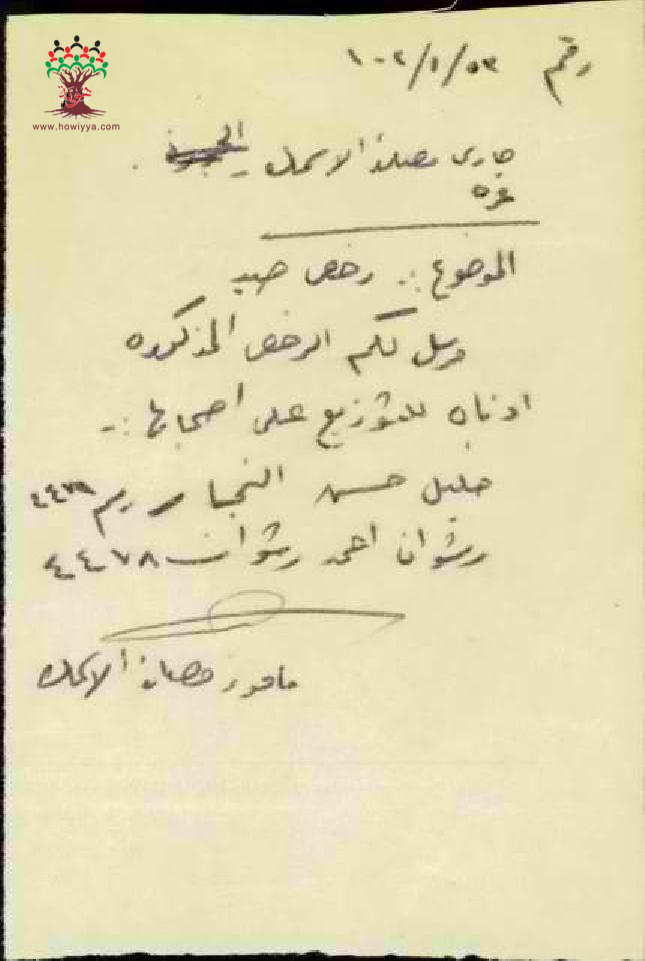 www.howiyya.com
رقم ٥٣/١/١٠٢
مصلحة الاسماك
غزه
الموضوع :. رخص صيد
نرسل لكم الرخص المذكوره
ادناه للتوزيع على اصحابها :-
خليل حسن النجار
رشوان احمد رشوان ٤٤٧٨
مأمور مصلحة الاسماك